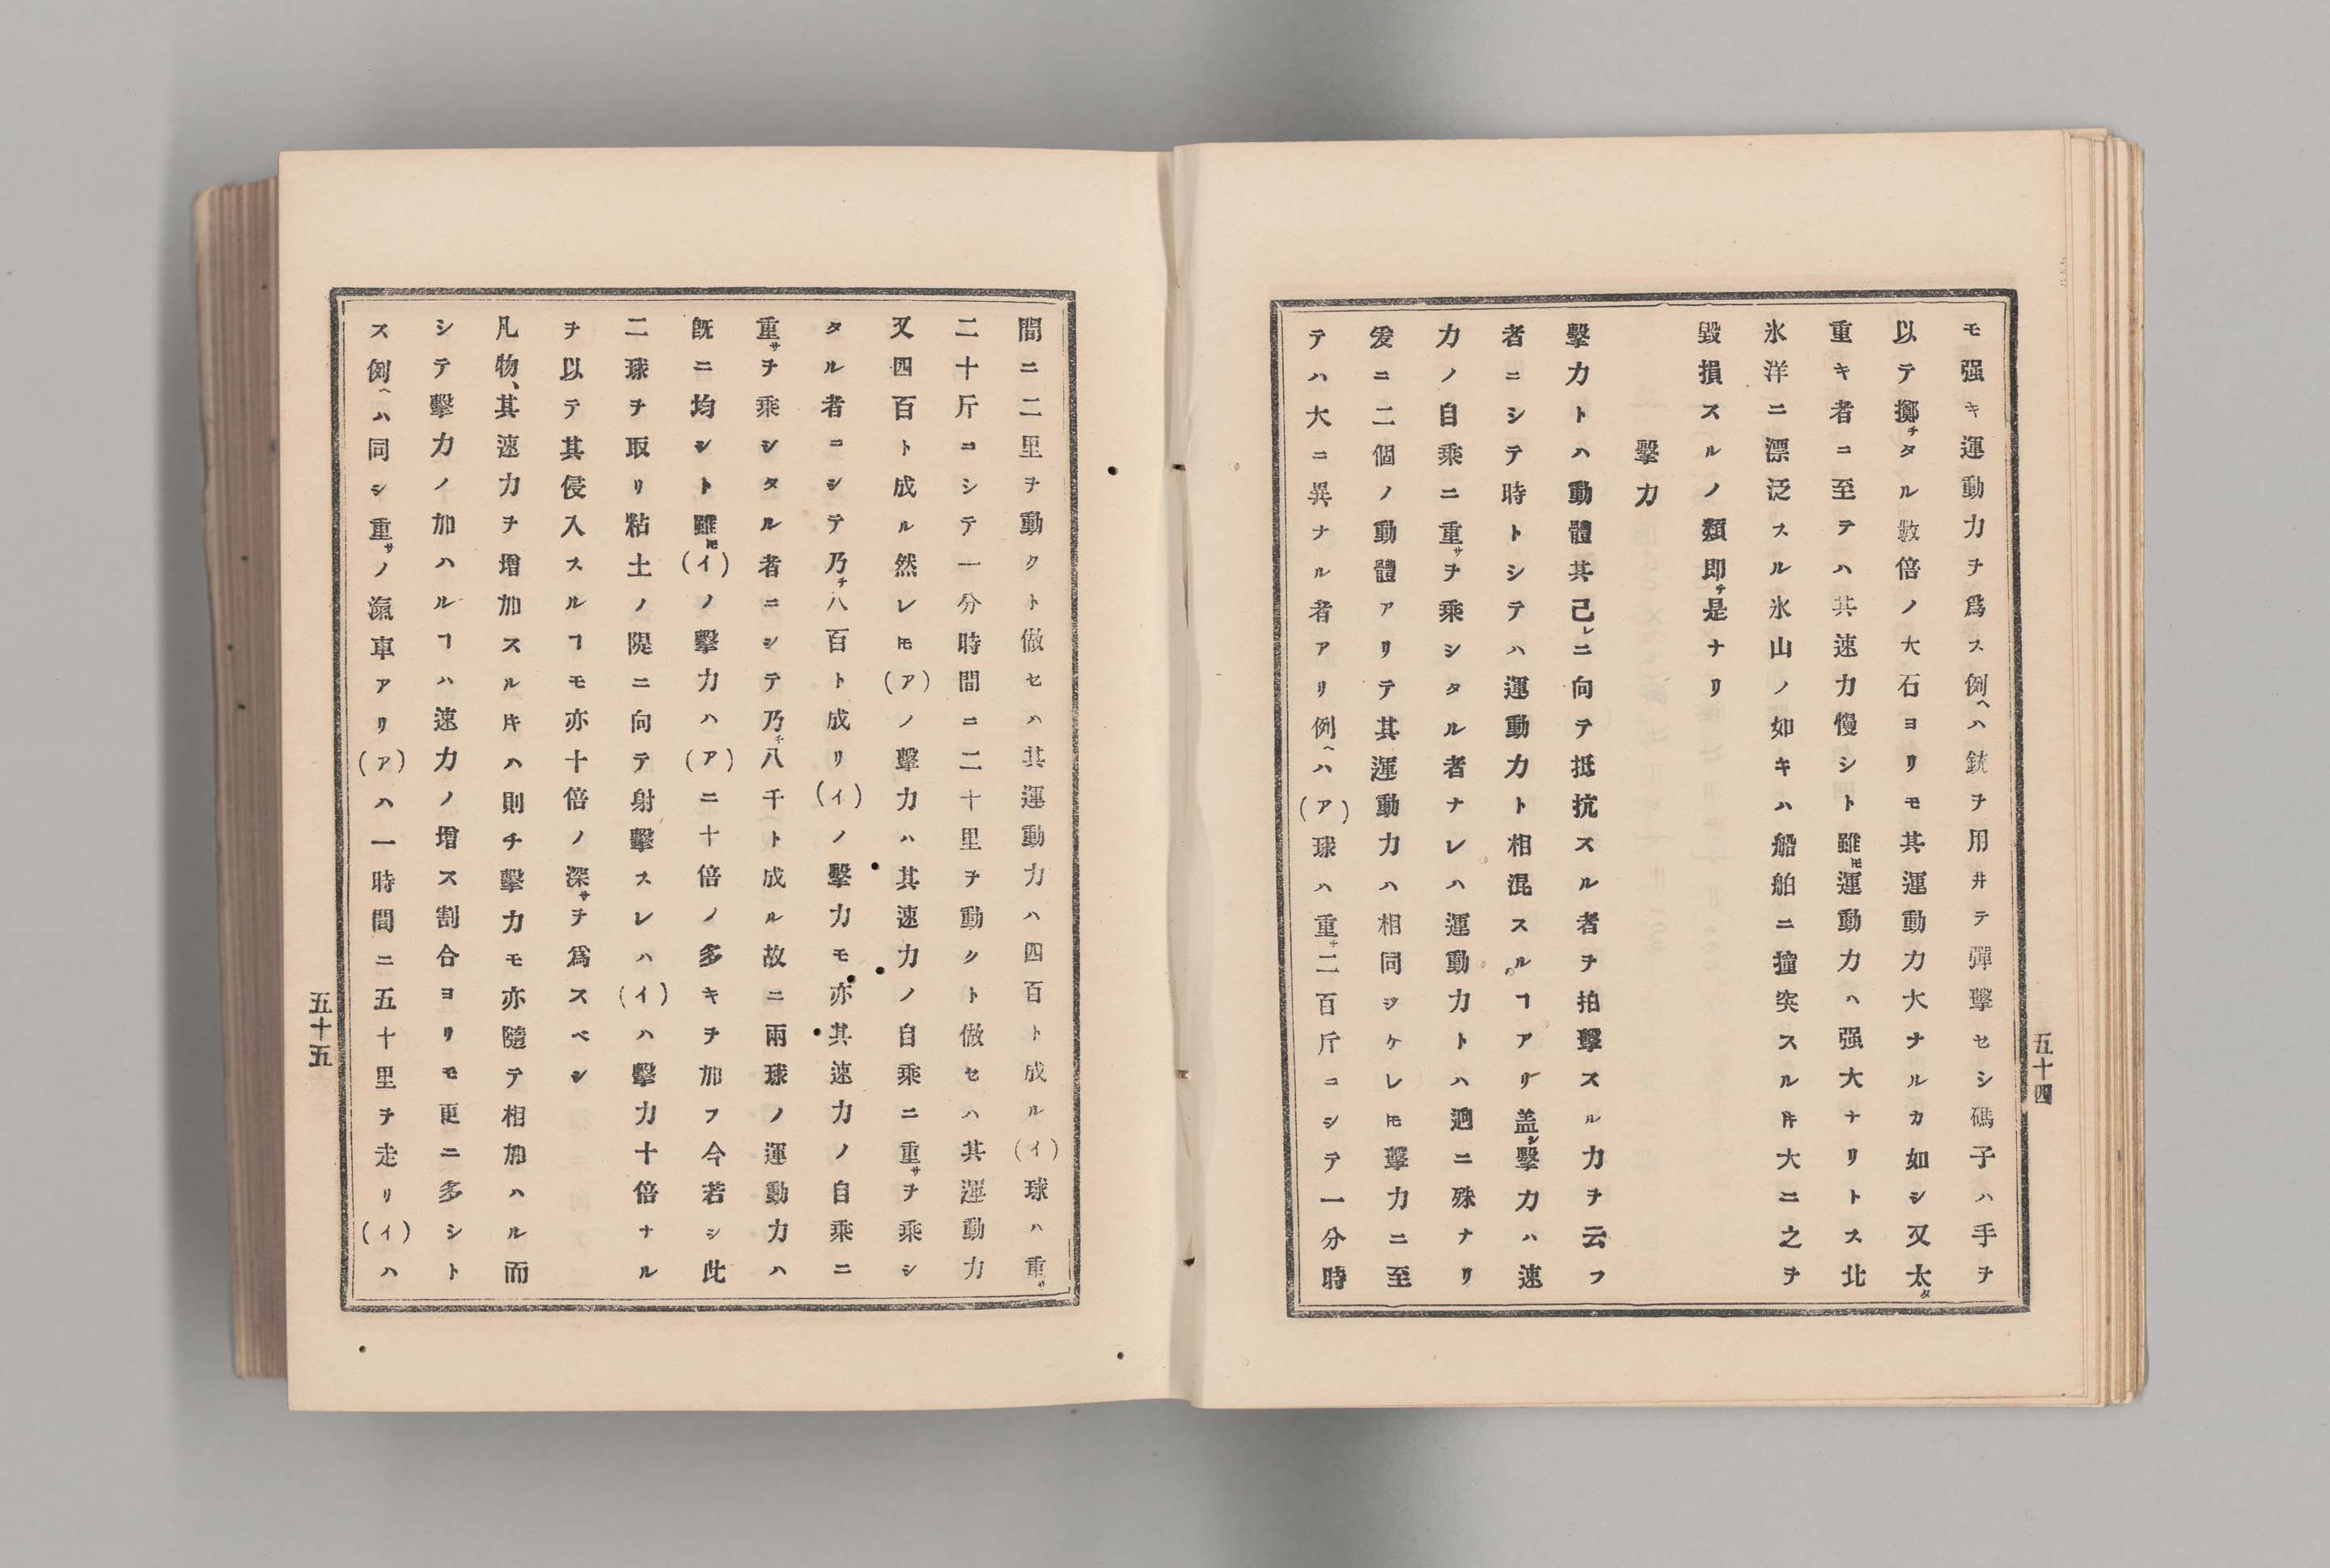 五十四
モ强キ運動力ヲ爲ス例ヘハ銃ヲ用井テ彈擊セシ碼子ハ手ヲ
以テ擲チタル數倍ノ大石ヨリモ其運動力大ナルカ如シ又太タ
重キ者ニ至テハ其速力慢シト雖𪜈運動力ハ强大ナリトス北
氷洋ニ漂泛スル氷山ノ如キハ船舶ニ撞突スル𪜈大ニ之ヲ
毀損スルノ類即チ是ナリ
擊力
擊力トハ動體其己レニ向テ抵抗スル者ヲ拍擊スル力ヲ云フ
者ニシテ時トシテハ運動力ト相混スルヿアリ盖シ擊力ハ速
力ノ自乘ニ重サヲ乘シタル者ナレハ運動力トハ逈ニ殊ナリ
爰ニ二個ノ動體アリテ其運動力ハ相同シケレ𪜈擊力ニ至
テハ大ニ異ナル者アリ例ヘハ(ア)球ハ重サ二百斤ニシテ一分時
間ニ二里ヲ動クト做セハ其運動力ハ四百ト成ル(イ)球ハ重サ
二十斤ニシテ一分時間ニ二十里ヲ動クト做セハ其運動力
又四百ト成ル然レ𪜈(ア)ノ擊力ハ其速力ノ自乘ニ重サヲ乘シ
タル者ニシテ乃チ八百ト成リ(イ)ノ擊力モ亦其速力ノ自乘ニ
重サヲ乘シタル者ニシテ乃チ八千ト成ル故ニ兩球ノ運動力ハ
旣ニ均シト雖𪜈(イ)ノ擊力ハ(ア)ニ十倍ノ多キヲ加フ今若シ此
二球ヲ取リ粘土ノ隄ニ向テ射擊スレハ(イ)ハ擊力十倍ナル
ヲ以テ其侵入スルヿモ亦十倍ノ深サヲ爲スベシ
凡物、其速力ヲ增加スル𪜈ハ則チ擊力モ亦隨テ相加ハル而
シテ擊力ノ加ハルヿハ速力ノ增ス割合ヨリモ更ニ多シト
ス例ヘハ同シ重サノ滊車アリ(ア)ハ一時間ニ五十里ヲ走リ(イ)ハ
五十五